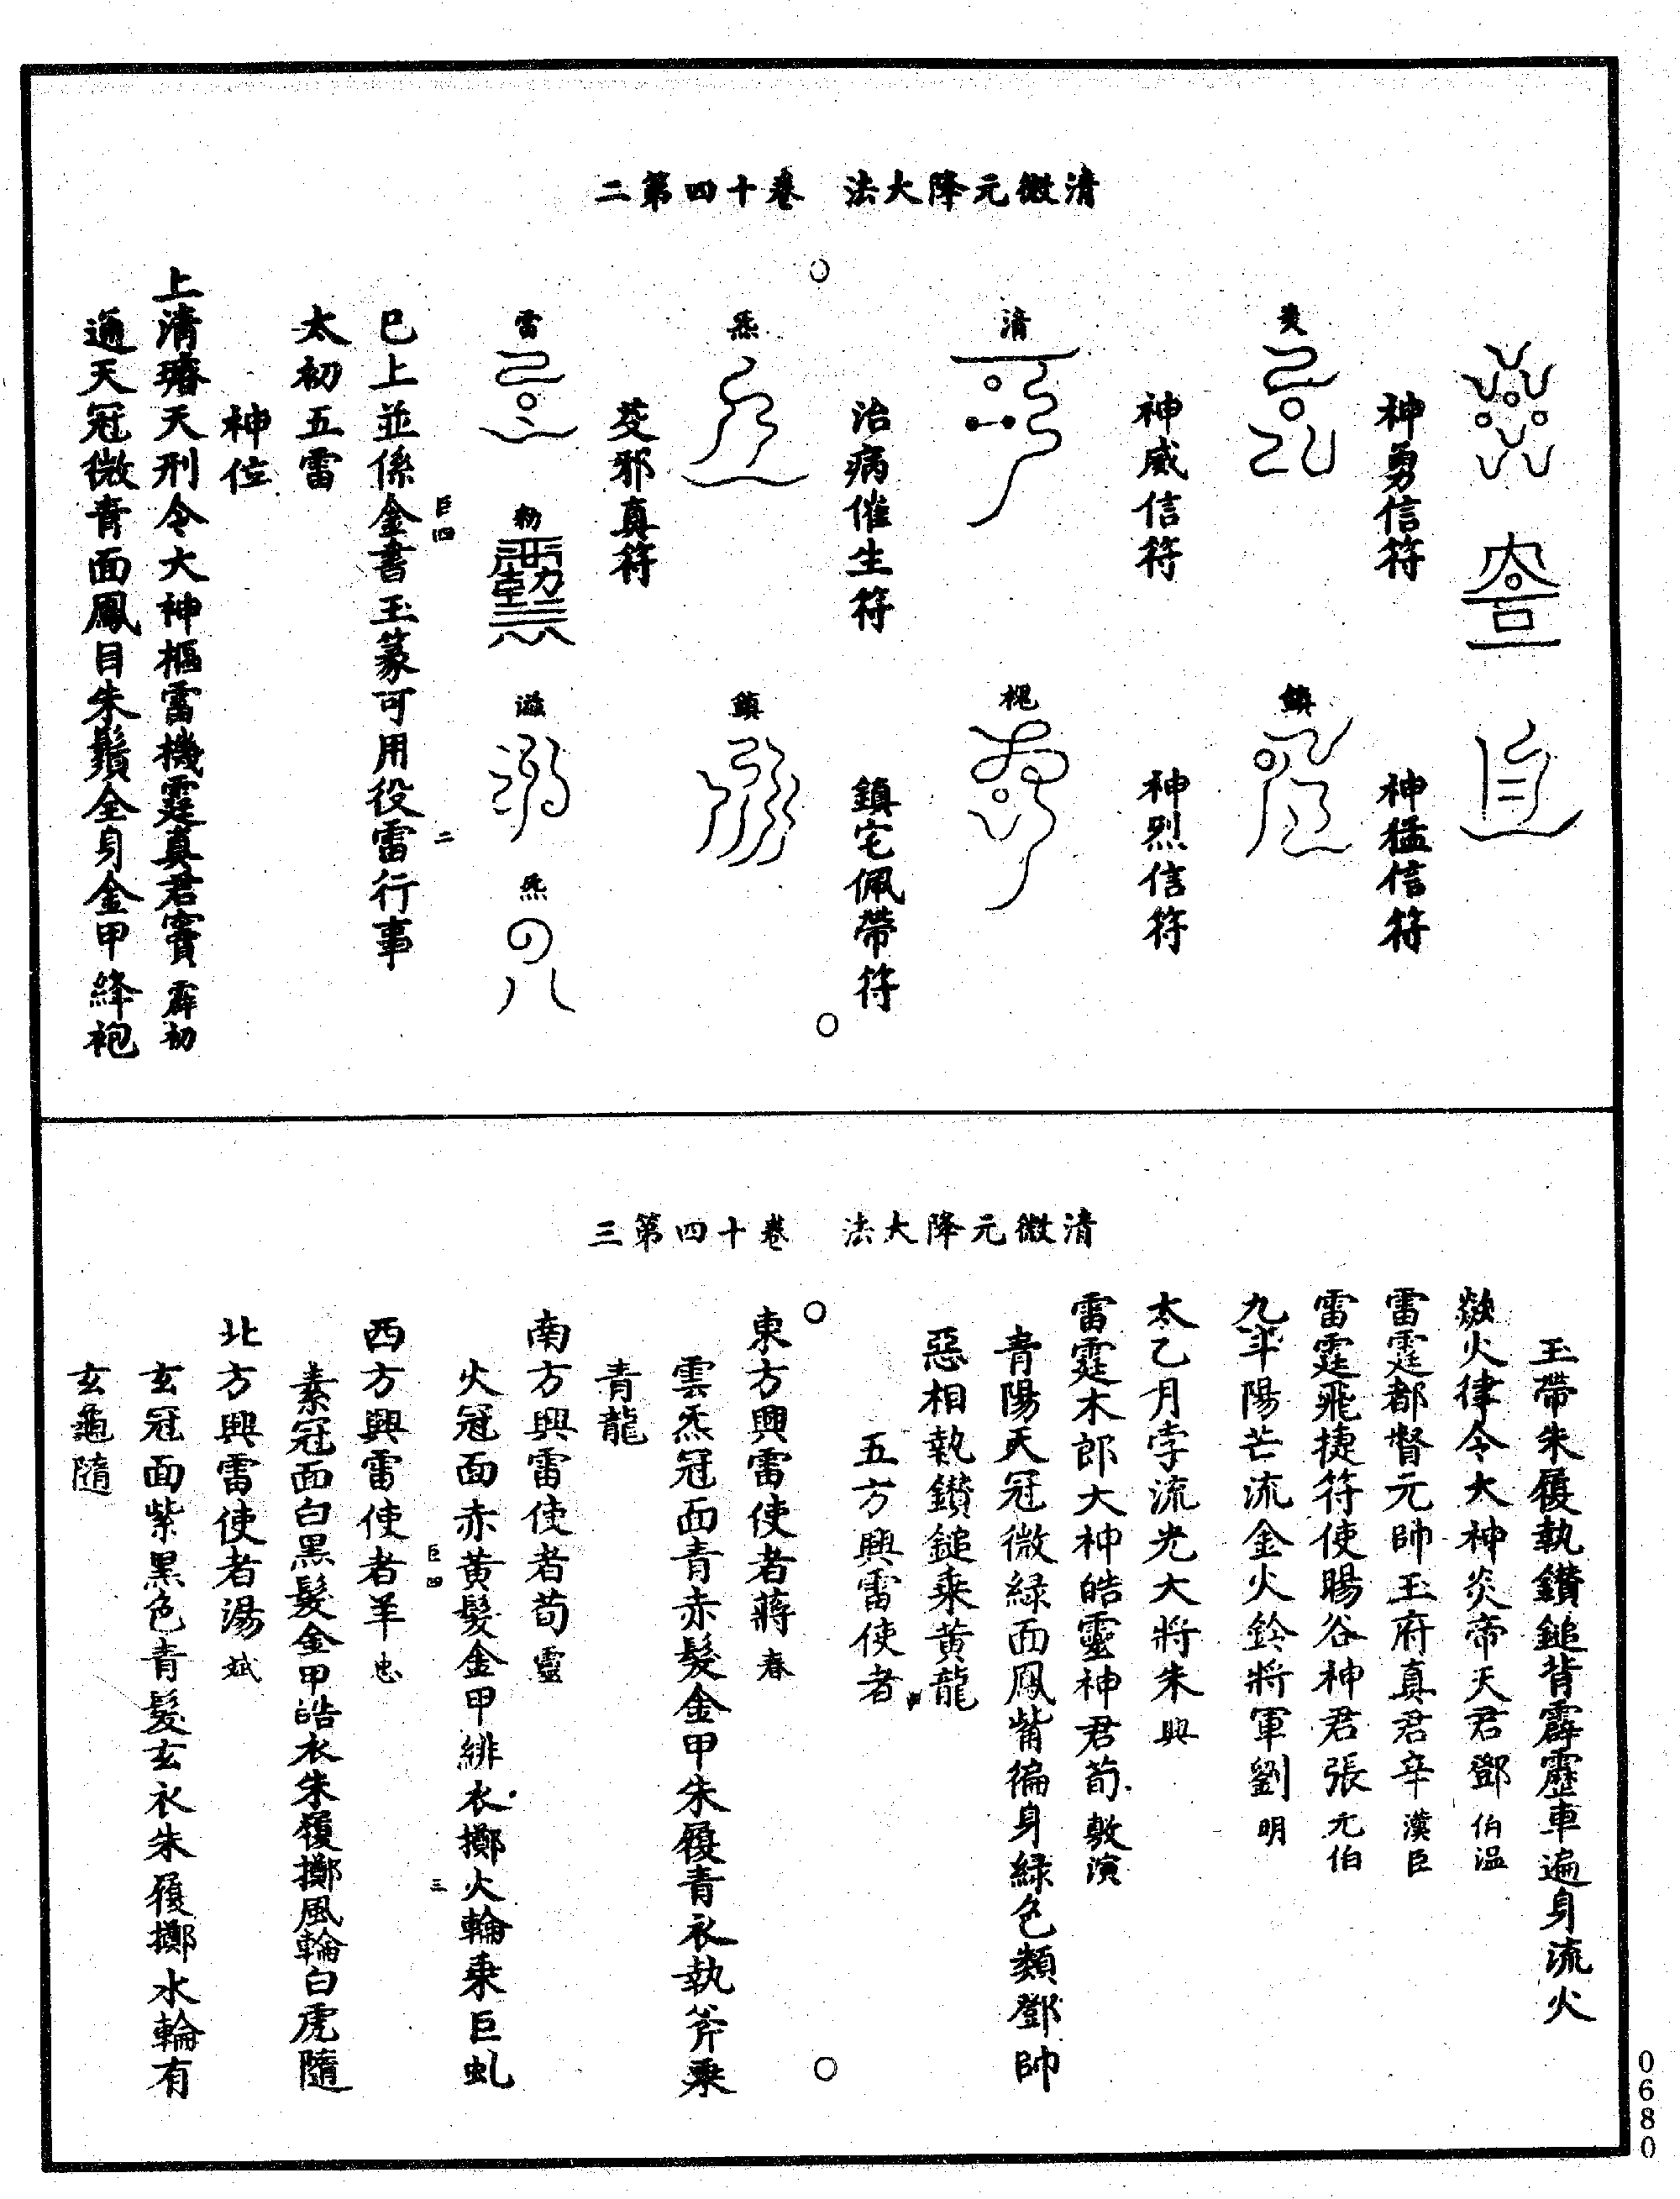 清微元降大法　卷十四第二
神勇信符
神猛信符
爽
鎮
神威信符
神烈信符
清
槐
治病催生符
鎮宅佩帶符
炁
鎮
芟邪真符
雷
初
滋
炁
巳上並係金書玉篆可用役雷行事
太初五雷
神位
上清璿天刑令大神樞雷機霆真君竇霹初
通天冠微青面鳳目朱鬚全身金甲絳袍
清微元降大法　卷十四第三
玉帶朱履執鑽鎚背霹靂車遍身流火
歘火律令大神炎帝天君鄧伯溫
雷霆都督元帥玉府真君辛漢臣
雷霆飛捷符使暘谷神君張元伯
九斗陽芒流金火鈴將軍劉明
太乙月孛流光大將朱興
雷霆木郎大神皓靈神君荀敷演
青陽天冠微綠面鳳觜徧身綠色類鄧帥
惡相執鑽鎚乘黃龍
五方興雷使者
東方興雷使者蔣春
雲炁冠面青赤髮金甲朱履青衣執斧乘
青龍
南方興雷使者荀靈
火冠面赤黃髮金甲緋衣擲火輪乘巨虬
西方興雷使者羊忠
素冠面白黑髮金甲皓衣朱履擲風輪白虎隨
北方興雷使者湯斌
玄冠面紫黑色青髮玄衣朱履擲水輪有
玄龜隨
巨四
二
巨四
三
0680